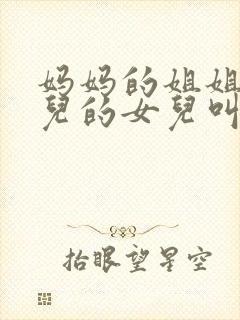 妈妈的姐姐
兒的女兒叫
抬眼望星空